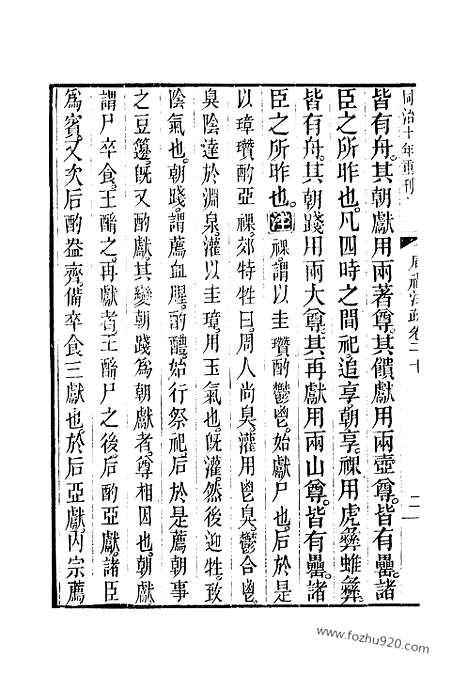 同治十年重刊
周禮注疏卷二十
二
皆有舟其朝獻用兩著尊其饋獻用兩壺尊皆有罍諸
臣之所昨也凡四時之間祀追享朝享祼用虎彝蜼彝
皆有舟其朝踐用兩大尊其再獻用兩山尊皆有罍諸
臣之所昨也。注祼謂以圭瓚酌鬱鬯始獻尸也。后於是
以璋瓚酌亞祼。郊特牲曰。周人尚臭。灌用鬯臭。鬱合鬯
臭陰達於淵泉灌以圭璋。用玉氣也。旣灌。然後迎牲。致
陰氣也。朝踐。謂薦血腥。酌醴。始行祭祀。后於是薦朝事
之豆籩。旣又酌獻其變朝踐爲朝獻者。尊相因也。朝獻
謂尸卒食。王酳之。再獻者。王酳尸之後。后酌亞獻。諸臣
爲賓。又次后酌盎齊。備卒食三獻也。於后亞獻。內宗薦
www.fozhu920.com